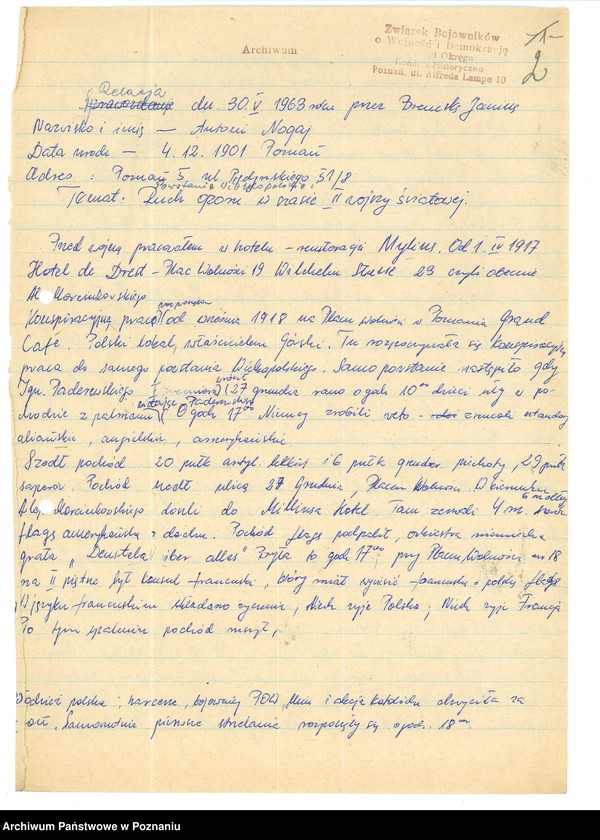 Archiwum
Związek Bojowników
o Wolność i Demokrację
Poznań, ul. Alfreda Lampe 10
2
Relacja
dn. 30.V 1963 roku przez
Nazwisko i imię — Antoni Nogaj
Data urodz — 4.12.1901 Poznań
Adres : Poznań 5, ul. 51/8
Powstanie Wielkopolskie i
Temat: Ruch oporu w czasie II wojny światowej.
Przed wojną pracowałem w hotelu – restauracji Mylius. Od 1.IV 1917
Hotel de Drest – Plac Wolności 19 Wilchelm Strasse 23 czyli obecnie
Al. Marcinkowskiego
Konspiracyjną pracę od września 1918 na Placu Wolności w Poznaniu Grand
Café. Polski lokal, właścicielem Górski. Tu rozpoczynała się konspiracyjna
praca do samego powstania Wielkopolskiego. Samo powstanie nastąpiło gdy
Ign. Paderewskiego (27 grudnia rano o godz. 10°° dzieci szły w po-
chodzie z palmami O godz 17°° Niemcy zrobili veto – zrzucali sztandary
aliańskie, angielskie, amerykańskie
Szedł pochód 20 pułk artyl. lekkiej i 6 pułk grenader. piechoty, 29 pułk
saperów. Pochód szedł ulicą 27 Grudnia, Placem Wolności W kierunku
Alej Marcinkowskiego doszli do Milliusa Hotel Tam zerwali 4 m.
flagę amerykańską z dachu. Pochód flagę podpalił, orkiestra niemiecka
grała „Deustela iber alles" Była to godz 17°° przy Placu Wolności nr 18
na II piętrze był konsul francuski, który miał francuską i polską flagę
W języku francuskim składano życzenia, Niech żyje Polska; Niech żyje Francja
Po tym spaleniu pochód ruszył,
Młodzież polska; harcerze, bojownicy POW, za
broń. Samorodnie pierwsze strzelania rozpoczęły się o godz. 18°°
Archiwum Państwowe w Poznaniu